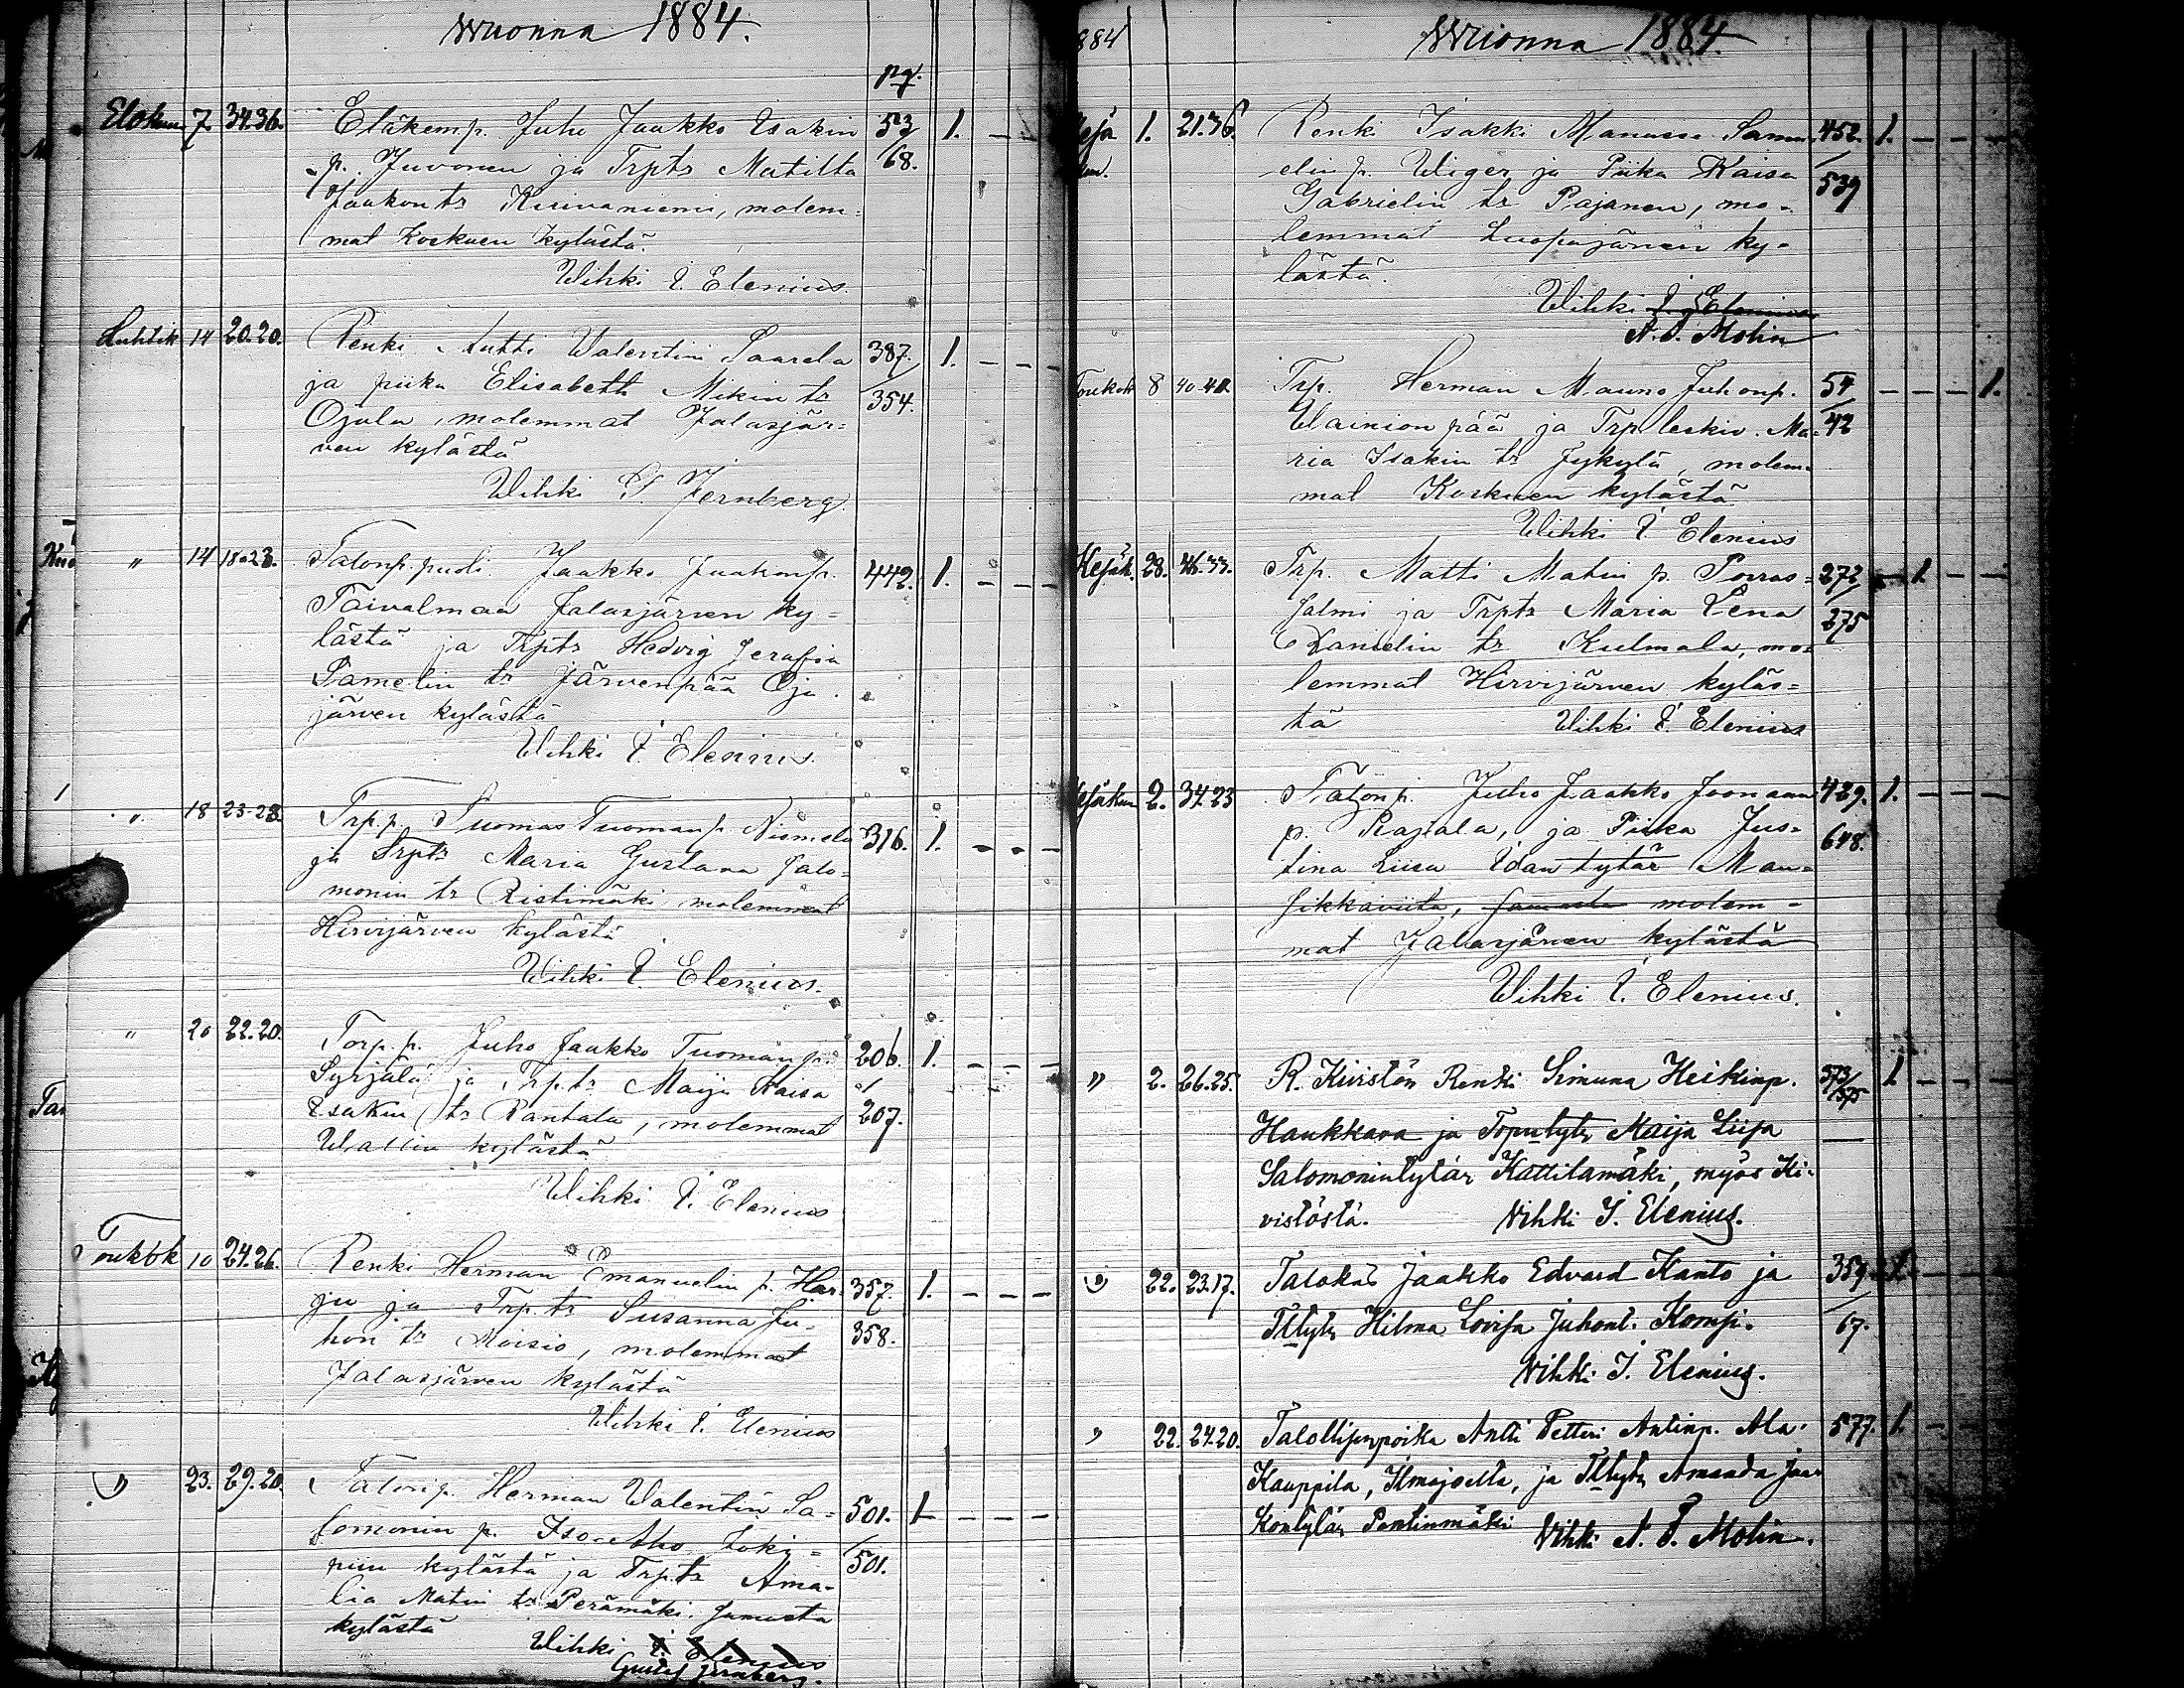 Wuonna 1884.
pg.
Elokuu 7. 34.36. Eläkem p. Juho Jaakko Isakin 53/68. 1. - -
p. Juvonen ja Trptr Matilta
Jaakon tr Kuivaniemi, molem=
mat Koskuen kylästä.
Wihki I. Elenius.
Huhtik 14 20.20. Renki Antti Walentin Saarela 387/354. 1. - - -
ja piika Elisabeth Mikin tr
Ojala, molemmat Jalasjär=
ven kylästä
Wihki G Jernberg.
" 14 18.23. Talonp. puoli Jaakko Jaakonp. 442. 1. - - -
Taivalmaa Jalasjärven ky=
lästä ja Trptr Hedvig Serafia
Samelin tr Järvenpää Oja
järven kylästä
Wihki I. Elenius.
" 18 23-28. Trp.p. Tuomas Tuomanp. Niemelä 316. 1. - - -
ja Trptr Maria Gustava Salo=
monin tr Ristimäki molemmat
Hirvijärven kylästä
Wihki I. Elenius.
" 20 22.20. Torp. p. Juho Jaakko Tuomanp. 206/207. 1. - - -
Syrjälä ja Trp.tr Maija Kaisa
Esakin tr Rantala, molemmat
Wallin kylästä
Wihki I. Elenius
Toukok 10 24.26. Renki Herman Emanuelin p. Har- 357. 358. 1. - - -
ju ja Trp.tr Susanna Ju-
hon tr Koisio, molemmat
Jalasjärven kylästä
Wihki I. Elenius
" 23. 29.20. Talonp. Herman Valentin Sa= 501./501. 1 - - -
lomonin p. Iso-Aho Joki=
piin kylästä ja Trp.tr Ama-
lia Matin tr Perämäki. Samasta
kylästä
Wihki I. Elenius
Gustaf Jernberg.
1884
Wuonna 1884.
Kesä 1. 21.36. Renki Isakki Manasse Samu- 452./539 1. - - -
kuu. elin p. Wiger ja Piika Kaisa
Gabrielin tr Pajanen, mo-
lemmat Luopajärven ky-
lästä.
Wihki I. Elenius
A. I. Molin
Toukok 8 40-41. Trp. Herman Mauno Juhonp. 54/42 - - - 1.
Wainionpää ja Trp leskiv. Ma-
ria Isakin tr Jykylä, molem-
mat Koskuen kylästä
Wihki I. Elenius
Kesäk. 28. 46.33. Trp. Matti Matin p. Porras= 272/275 - 1 - -
salmi ja Trptr Maria Lena
Danielin tr Kulmala, mo=
lemmat Hirvijärven kyläs=
tä Wihki I. Elenius
Kesäkuu 2. 34.23 Talonp. Juho Jaakko Joonaan 429. 648. 1. - - -
p. Rajala, ja Piika Jus=
tina Liisa Idan tytär Man=
sikkaviita, samasta molem-
mat Jalasjärven kylästä
Wihki I. Elenius.
" 2. 26.25. R. Kivistön Renki Simuna Heikinp. 573/575 1 - - -
Haukkara ja Toputytr Maija Liisa
Salomonintytär Kattilamäki, myös Ki-
vistöstä. Vihki I. Elenius.
" 22. 23.17. Talokas Jaakko Edvard Kanto ja 359/67. 1 - - -
Tltytr Hilma Lovisa Juhont. Kompi.
Vihki I. Elenius.
" 22. 24.20. Talollisenpoika Antti Petteri Antinp. Ala- 577. 1. - -
Kauppila, Ilmajoelta, ja Tltytr Amanda Jaa-
kontytär Pentinmäki Vihki A. I. Molin.